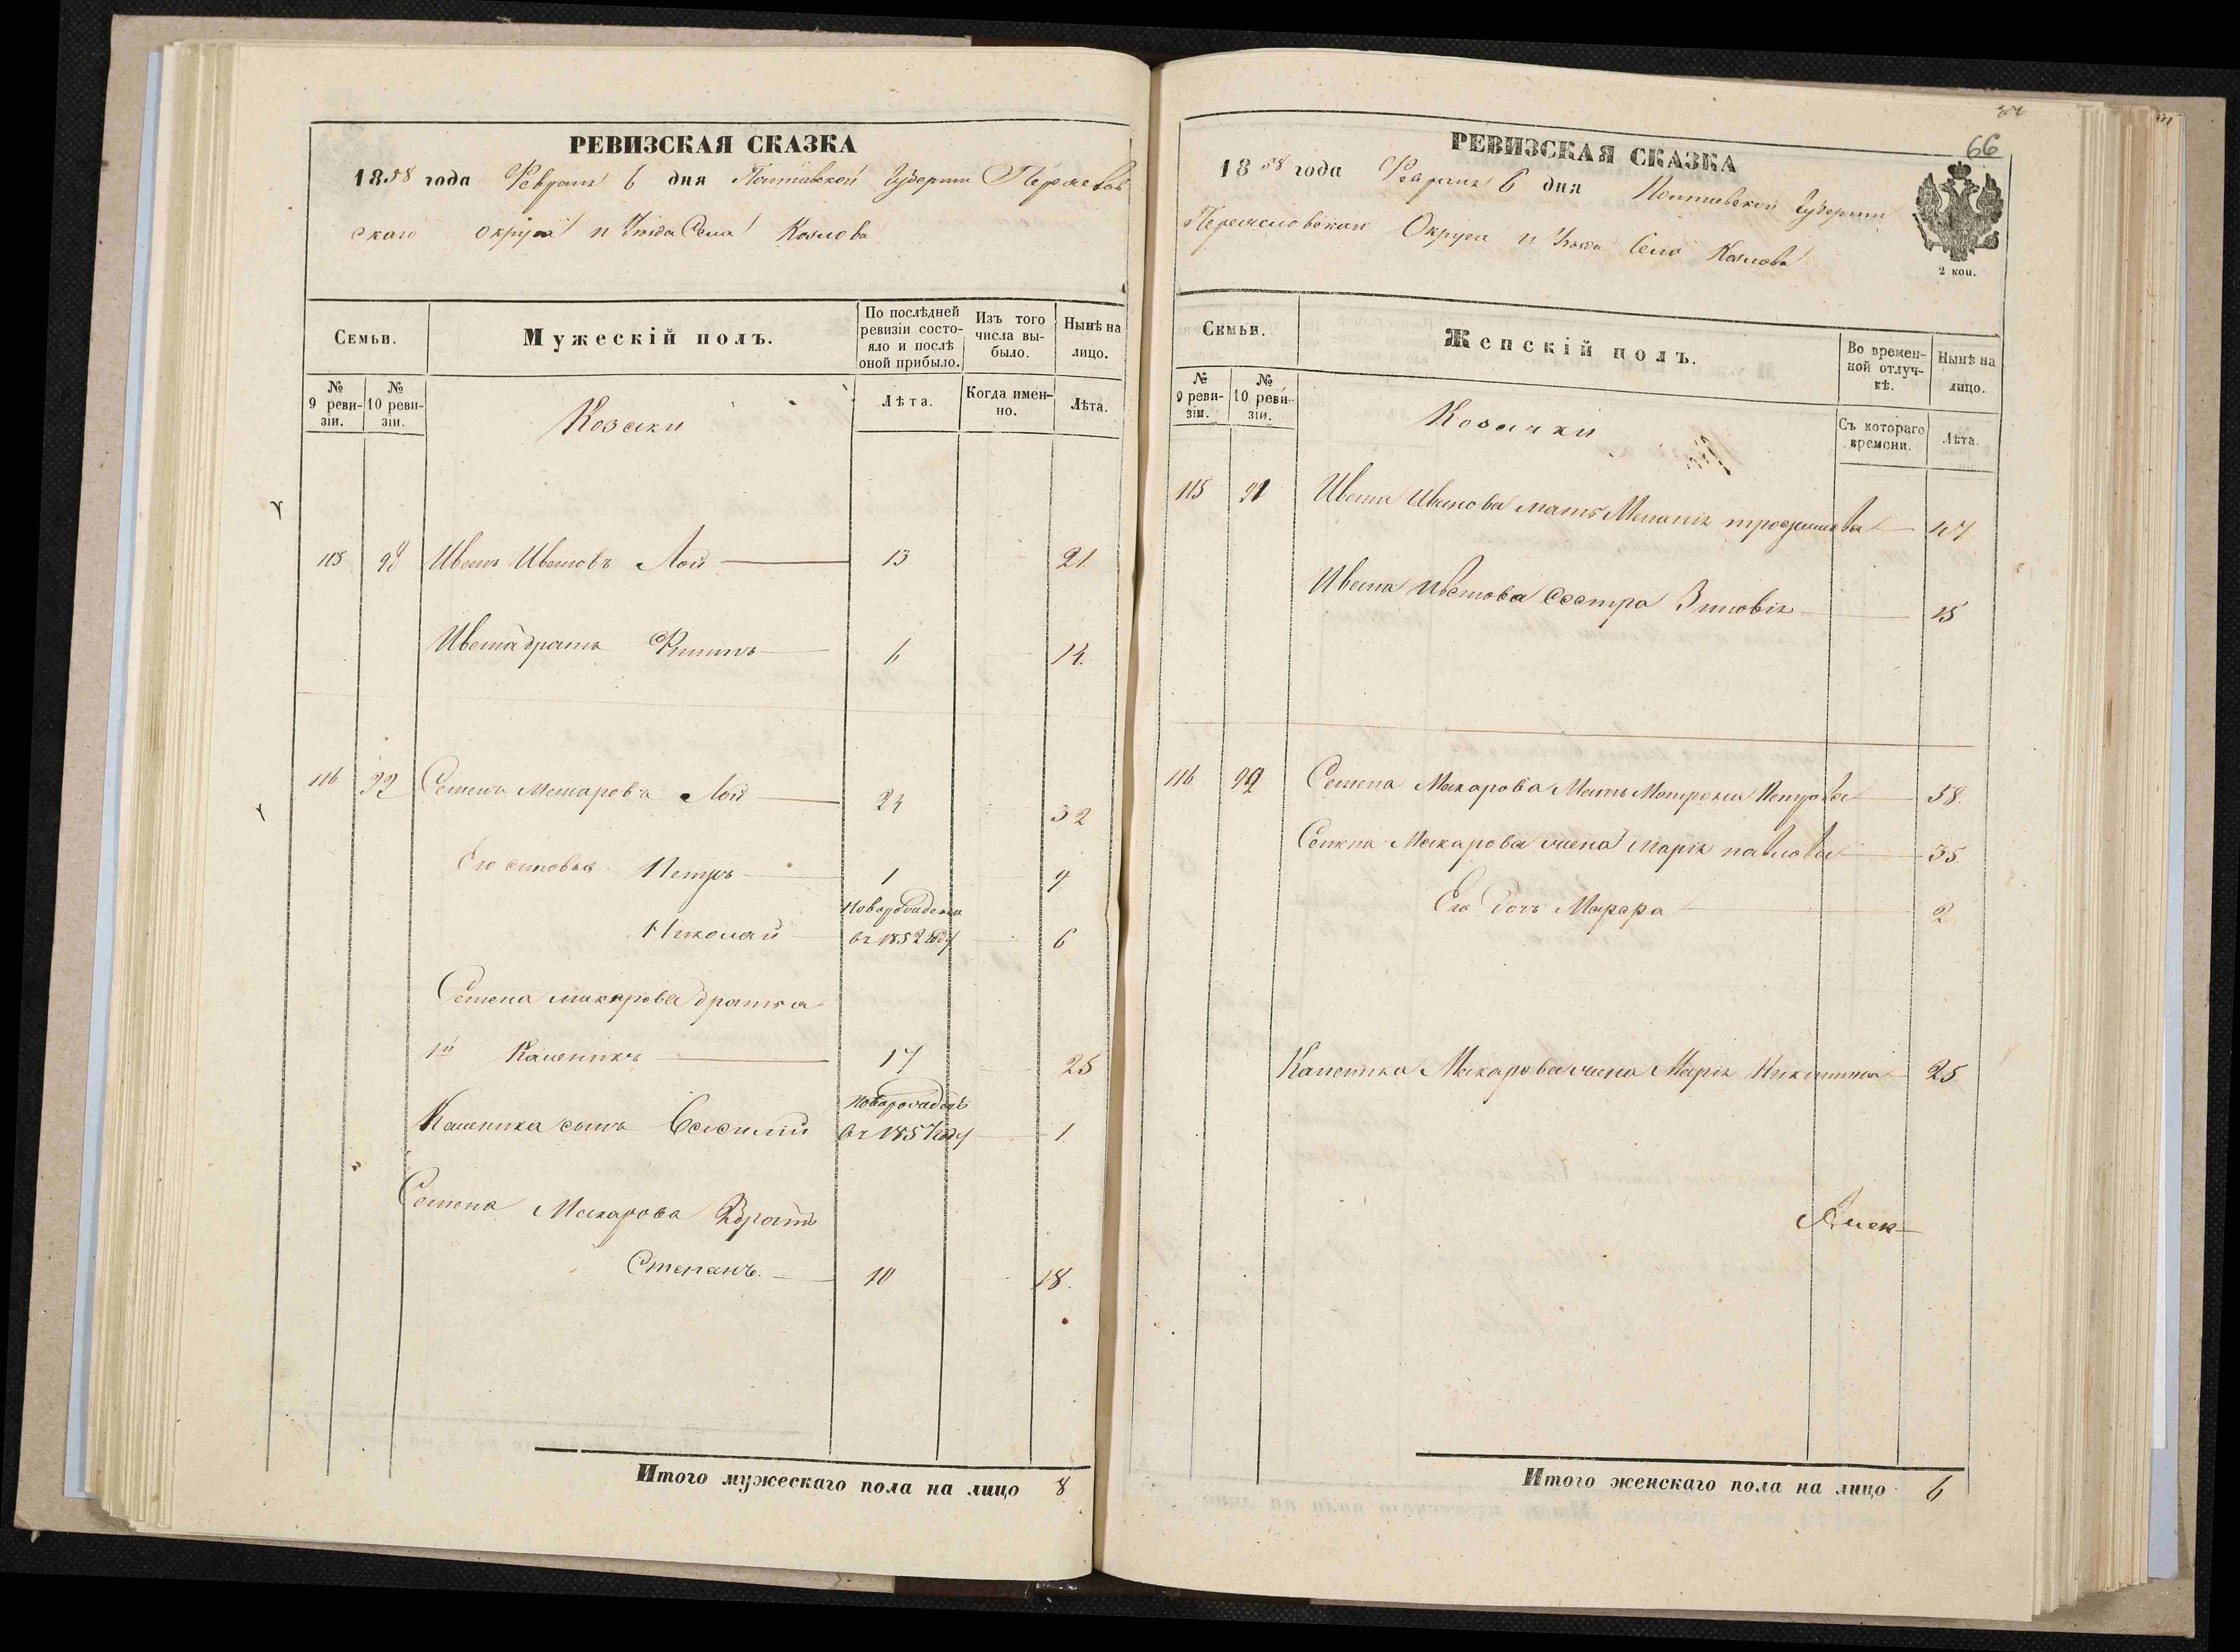 РЕВИЗСКАЯ СКАЗКА
1858 года Февраля 6 дня Полтавской Губернии Переяслов
скаго округа и Уезда Села Козлова
Семьи.
Мужескій полъ.
По послѣдней ревизіи состояло и послѣ оной прибыло.
Изъ того числа выбыло.
Нынѣ на лицо.
№ 9 ревизіи.
№ 10 ревизіи.
Козаки
Лѣта.
Когда именно.
Лѣта.
115 98 Иванъ Ивановъ Лой 13 21
Ивана братъ Филипъ 6 14.
116 99 Семенъ Макаровъ Лой 24 32
Его сыновья Петръ 1 9
Новорожденъ
Николай въ 1852 году 6
Семена макарова братья
1й Каленикъ 17 25
новорожденъ
Каленика сынъ Василий въ 1857 году 1
Семена Макарова 2 братъ
Степанъ. 10 18.
Итого мужескаго пола на лицо 8
66
РЕВИЗСКАЯ СКАЗКА
1858 года Февраля 6 дня Полтавской Губернии
Переясловскаго Округа и Уезда Села Козлова
2 коп.
Семьи.
Женскій полъ.
Во временной отлучкѣ.
Нынѣ на лицо.
№ 9 ревизіи.
№ 10 ревизіи.
Козачки
Съ котораго времени.
Лѣта.
115 98 Ивана Иванова мать Меланія трофимова 47
Ивана Иванова сестра Зиновія 15
116 99 Семена Макарова Мать Матрона Петрова 58.
Семена Макарова жена марія павлова 35.
Его дочь Марфа 2
Каленика Макарова жена Марія Никитина 25
Алек
Итого женскаго пола на лицо 6